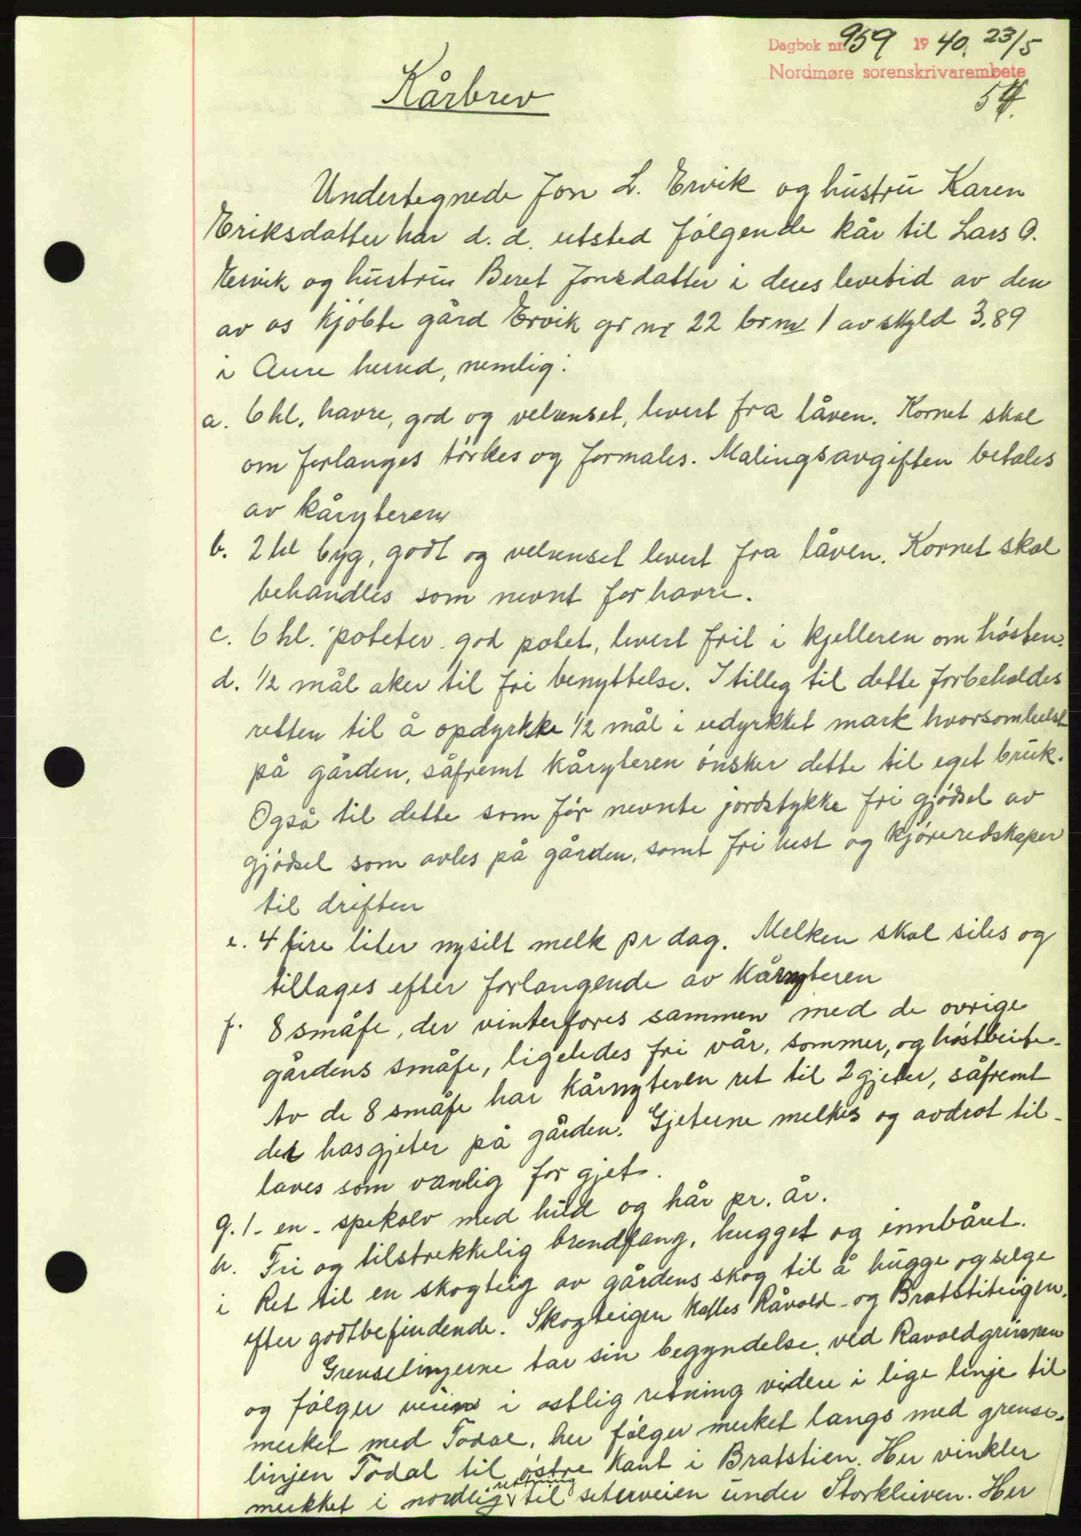 Dagbok nr. 959 1940. 23/5
Nordmøre sorenskrivarembete
Kårbrev
Undertegnede Jon L. Ervik og hustru Karen
Eriksdatter har d. d. utsted følgende kår til Lars O.
Ervik og hustru Beret Jonsdatter i deres levetid av den
av os kjøbte gård Ervik gr nr 22 br nr 1 av skyld 3,89
i Aure herred, nemlig:
a. 6 hl. havre, god og velrenset, levert fra låven. Kornet skal
om forlanges tørkes og formales. Malingsavgiften betales
av kåryteren
b. 2 hl byg, godt og velrenset levert fra låven. Kornet skal
behandles som nevnt for havre.
c. 6 hl. poteter. god potet, levert frit i kjelleren om høsten.
d. 1/2 mål aker til fri benyttelse. I tilleg til dette forbeholdes
retten til å opdyrkke 1/2 mål i udyrkket mark hvorsomhelst
på gården, såfremt kåryteren ønsker dette til eget bruk.
Også til dette som før nevnte jordstykke fri gjødsel av
gjødsel som avles på gården, samt fri hest og kjøreredskaper
til driften
e. 4 fire liter nysilt melk pr dag. Melken skal siles og
tillages efter forlangende av kårnyteren
f. 8 småfe, der vinterfores sammen med de øvrige
gårdens småfe, ligeledes fri vår, sommer, og høstbeite.
Av de 8 småfe har kårnyteren ret til 2 gjeter, såfremt
det has gjeter på gården. Gjeterne melkes og avdrot til-
laves som vanlig for gjet.
g. 1 - en - spekalv med hud og hår pr. år.
h. Fri og tilstrekkelig brendfang, hugget og innbåret.
i Ret til en skogteig av gårdens skog til å hugge og selge
efter godtbefindende. Skogteigen kalles Råvold - og Bratstiteigen.
Grenselinjerne tar sin begyndelse, ved Ravoldgrinnen
og følger veien i østlig retning videre i lige linje til
merket med Todal, her følger merket langs med grense-
linjen Todal til østre kant i Bratstien. Her vinkler
merkket i nordlig retning til seterveien under Storkleiven. Her